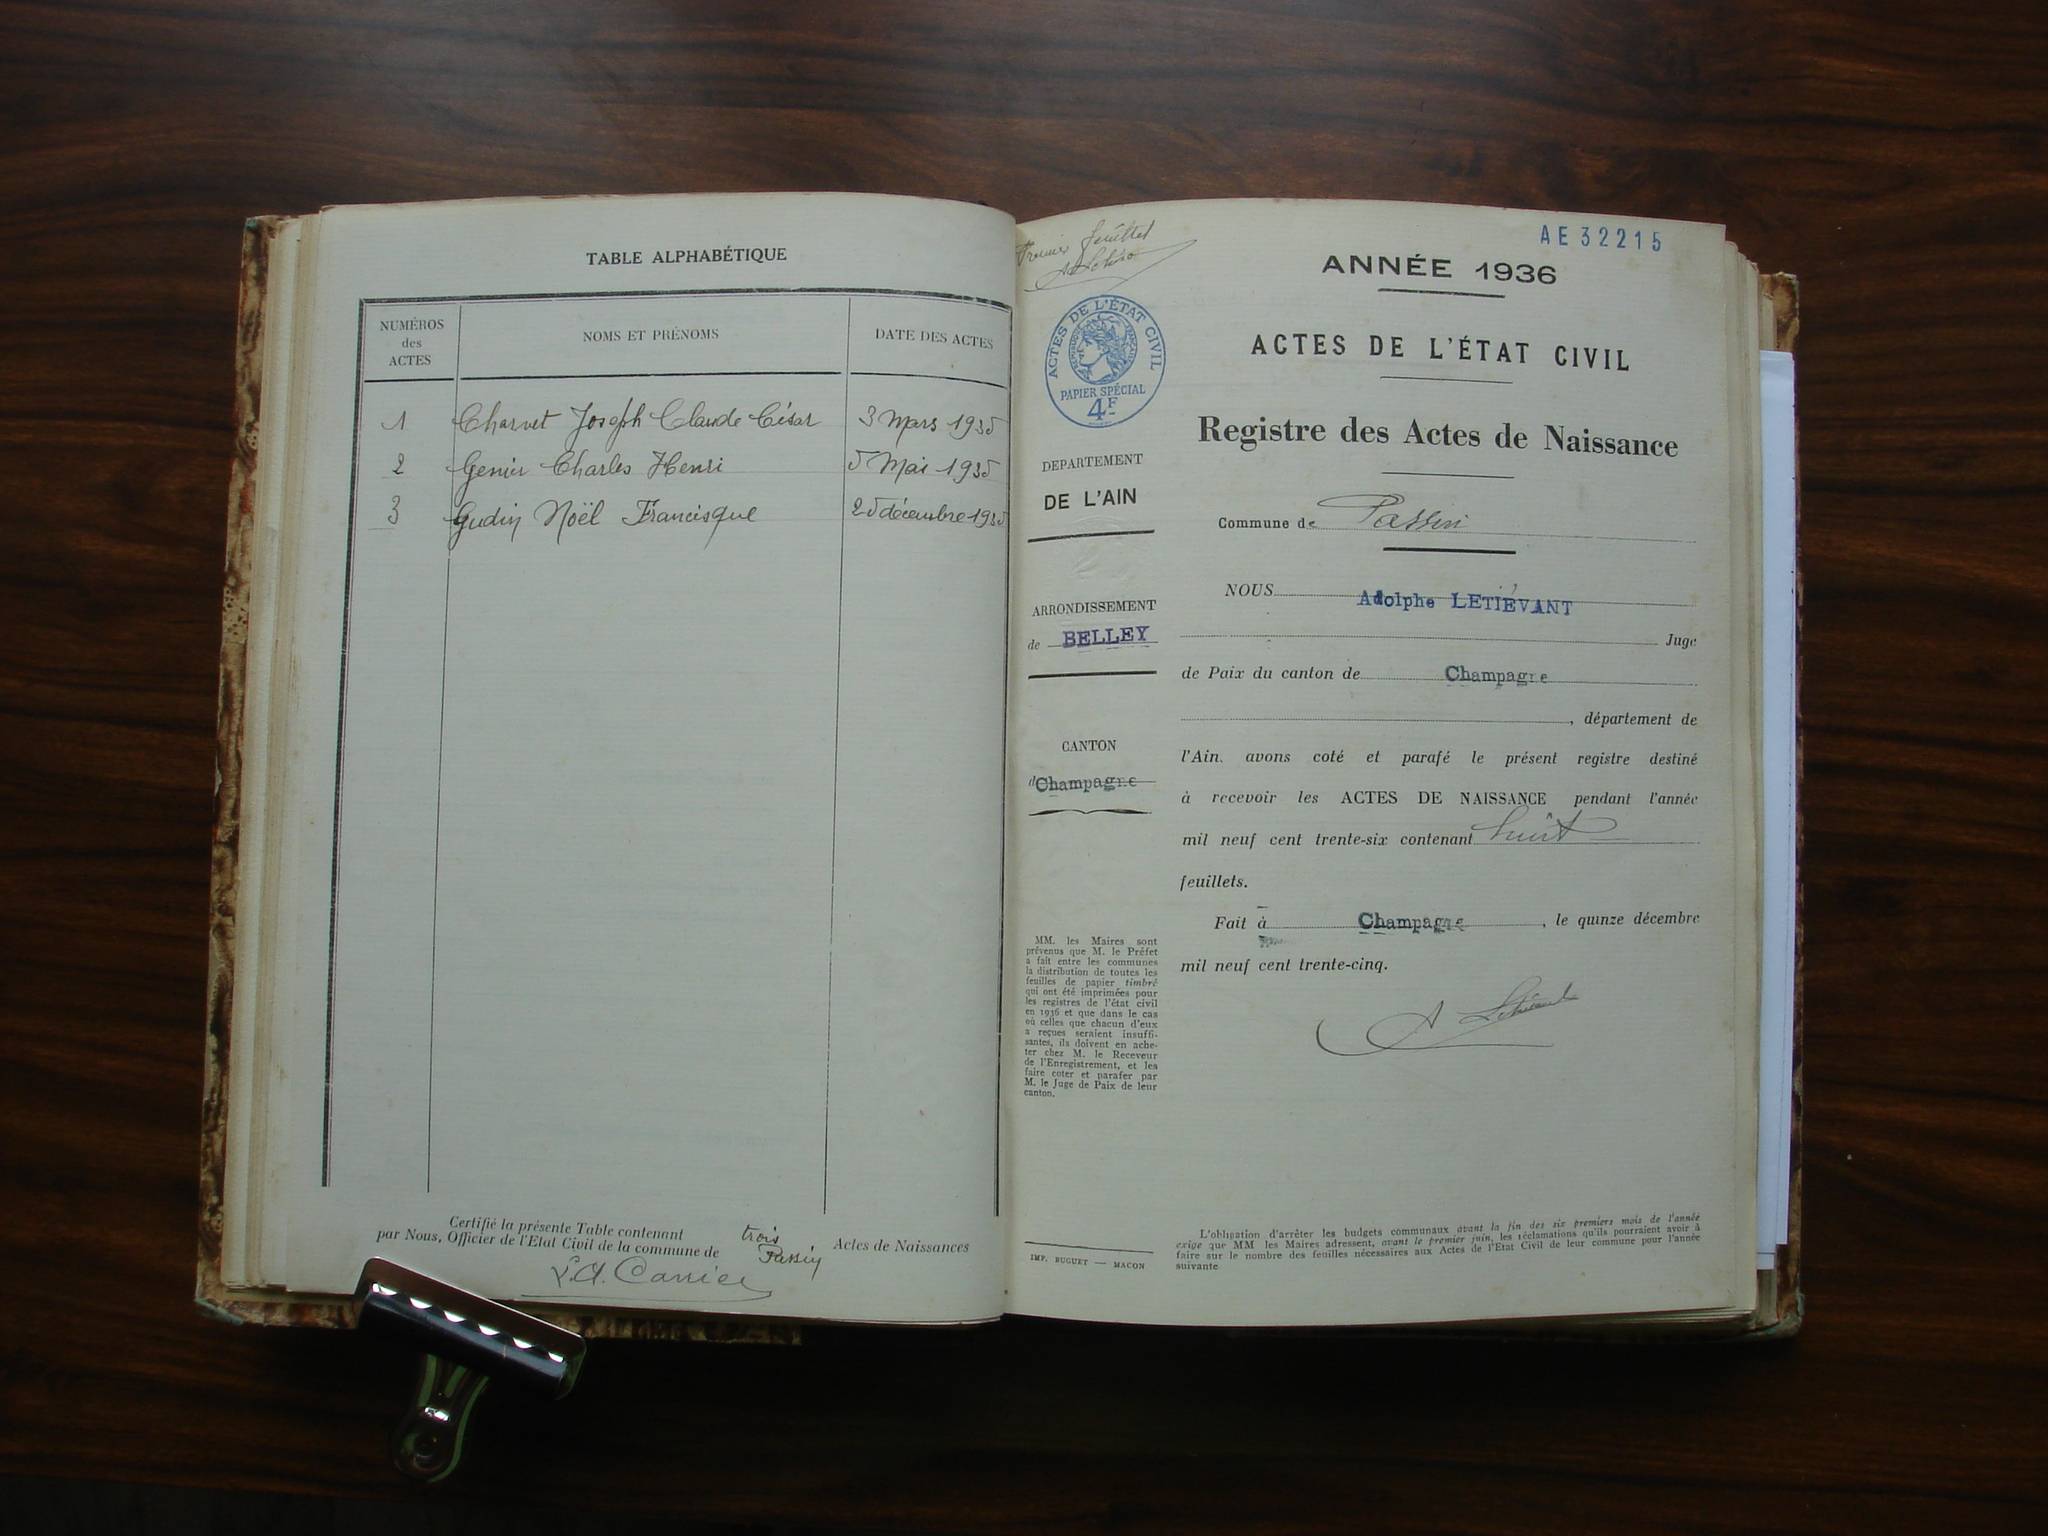 TABLE ALPHABÉTIQUE
NUMÉROS
des
ACTES
NOMS ET PRÉNOMS
DATE DES ACTES
1 Charvet Joseph Claude César 3 Mars 1935
2 Genin Charles Henri 5 Mai 1935
3 Gudin Noël Francisque 25 décembre 1935
Certifié la présente Table contenant trois Actes de Naissances
par Nous, Officier de l'Etat Civil de la commune de Passin
Premier feuillet
AE 32215
ANNÉE 1936
ACTES DE L'ÉTAT CIVIL
RÉPUBLIQUE FRANÇAISE
PAPIER SPÉCIAL
4F
DEPARTEMENT
DE L'AIN
ARRONDISSEMENT
de BELLEY
CANTON
d Champagne
MM. les Maires sont
prévenus que M. le Préfet
a fait entre les communes
la distribution de toutes les
feuilles de papier timbré
qui ont été imprimées pour
les registres de l'état civil
en 1936 et que dans le cas
où celles que chacun d'eux
a reçues seraient insuffi-
santes, ils doivent en ache-
ter chez M. le Receveur
de l'Enregistrement, et les
faire coter et parafer par
M. le Juge de Paix de leur
canton.
IMP. BUGUET — MACON
ACTES DE L'ÉTAT CIVIL
Registre des Actes de Naissance
Commune de Passin
NOUS Adolphe LETIÉVANT
Juge
de Paix du canton de Champagne
, département de
l'Ain. avons coté et parafé le présent registre destiné
à recevoir les ACTES DE NAISSANCE pendant l'année
mil neuf cent trente-six contenant huit
feuillets.
Fait à Champagne, le quinze décembre
mil neuf cent trente-cinq.
L'obligation d'arrêter les budgets communaux avant la fin des six premiers mois de l'année
exige que MM les Maires adressent, avant le premier juin, les réclamations qu'ils pourraient avoir à
faire sur le nombre des feuilles nécessaires aux Actes de l'Etat Civil de leur commune pour l'année
suivante